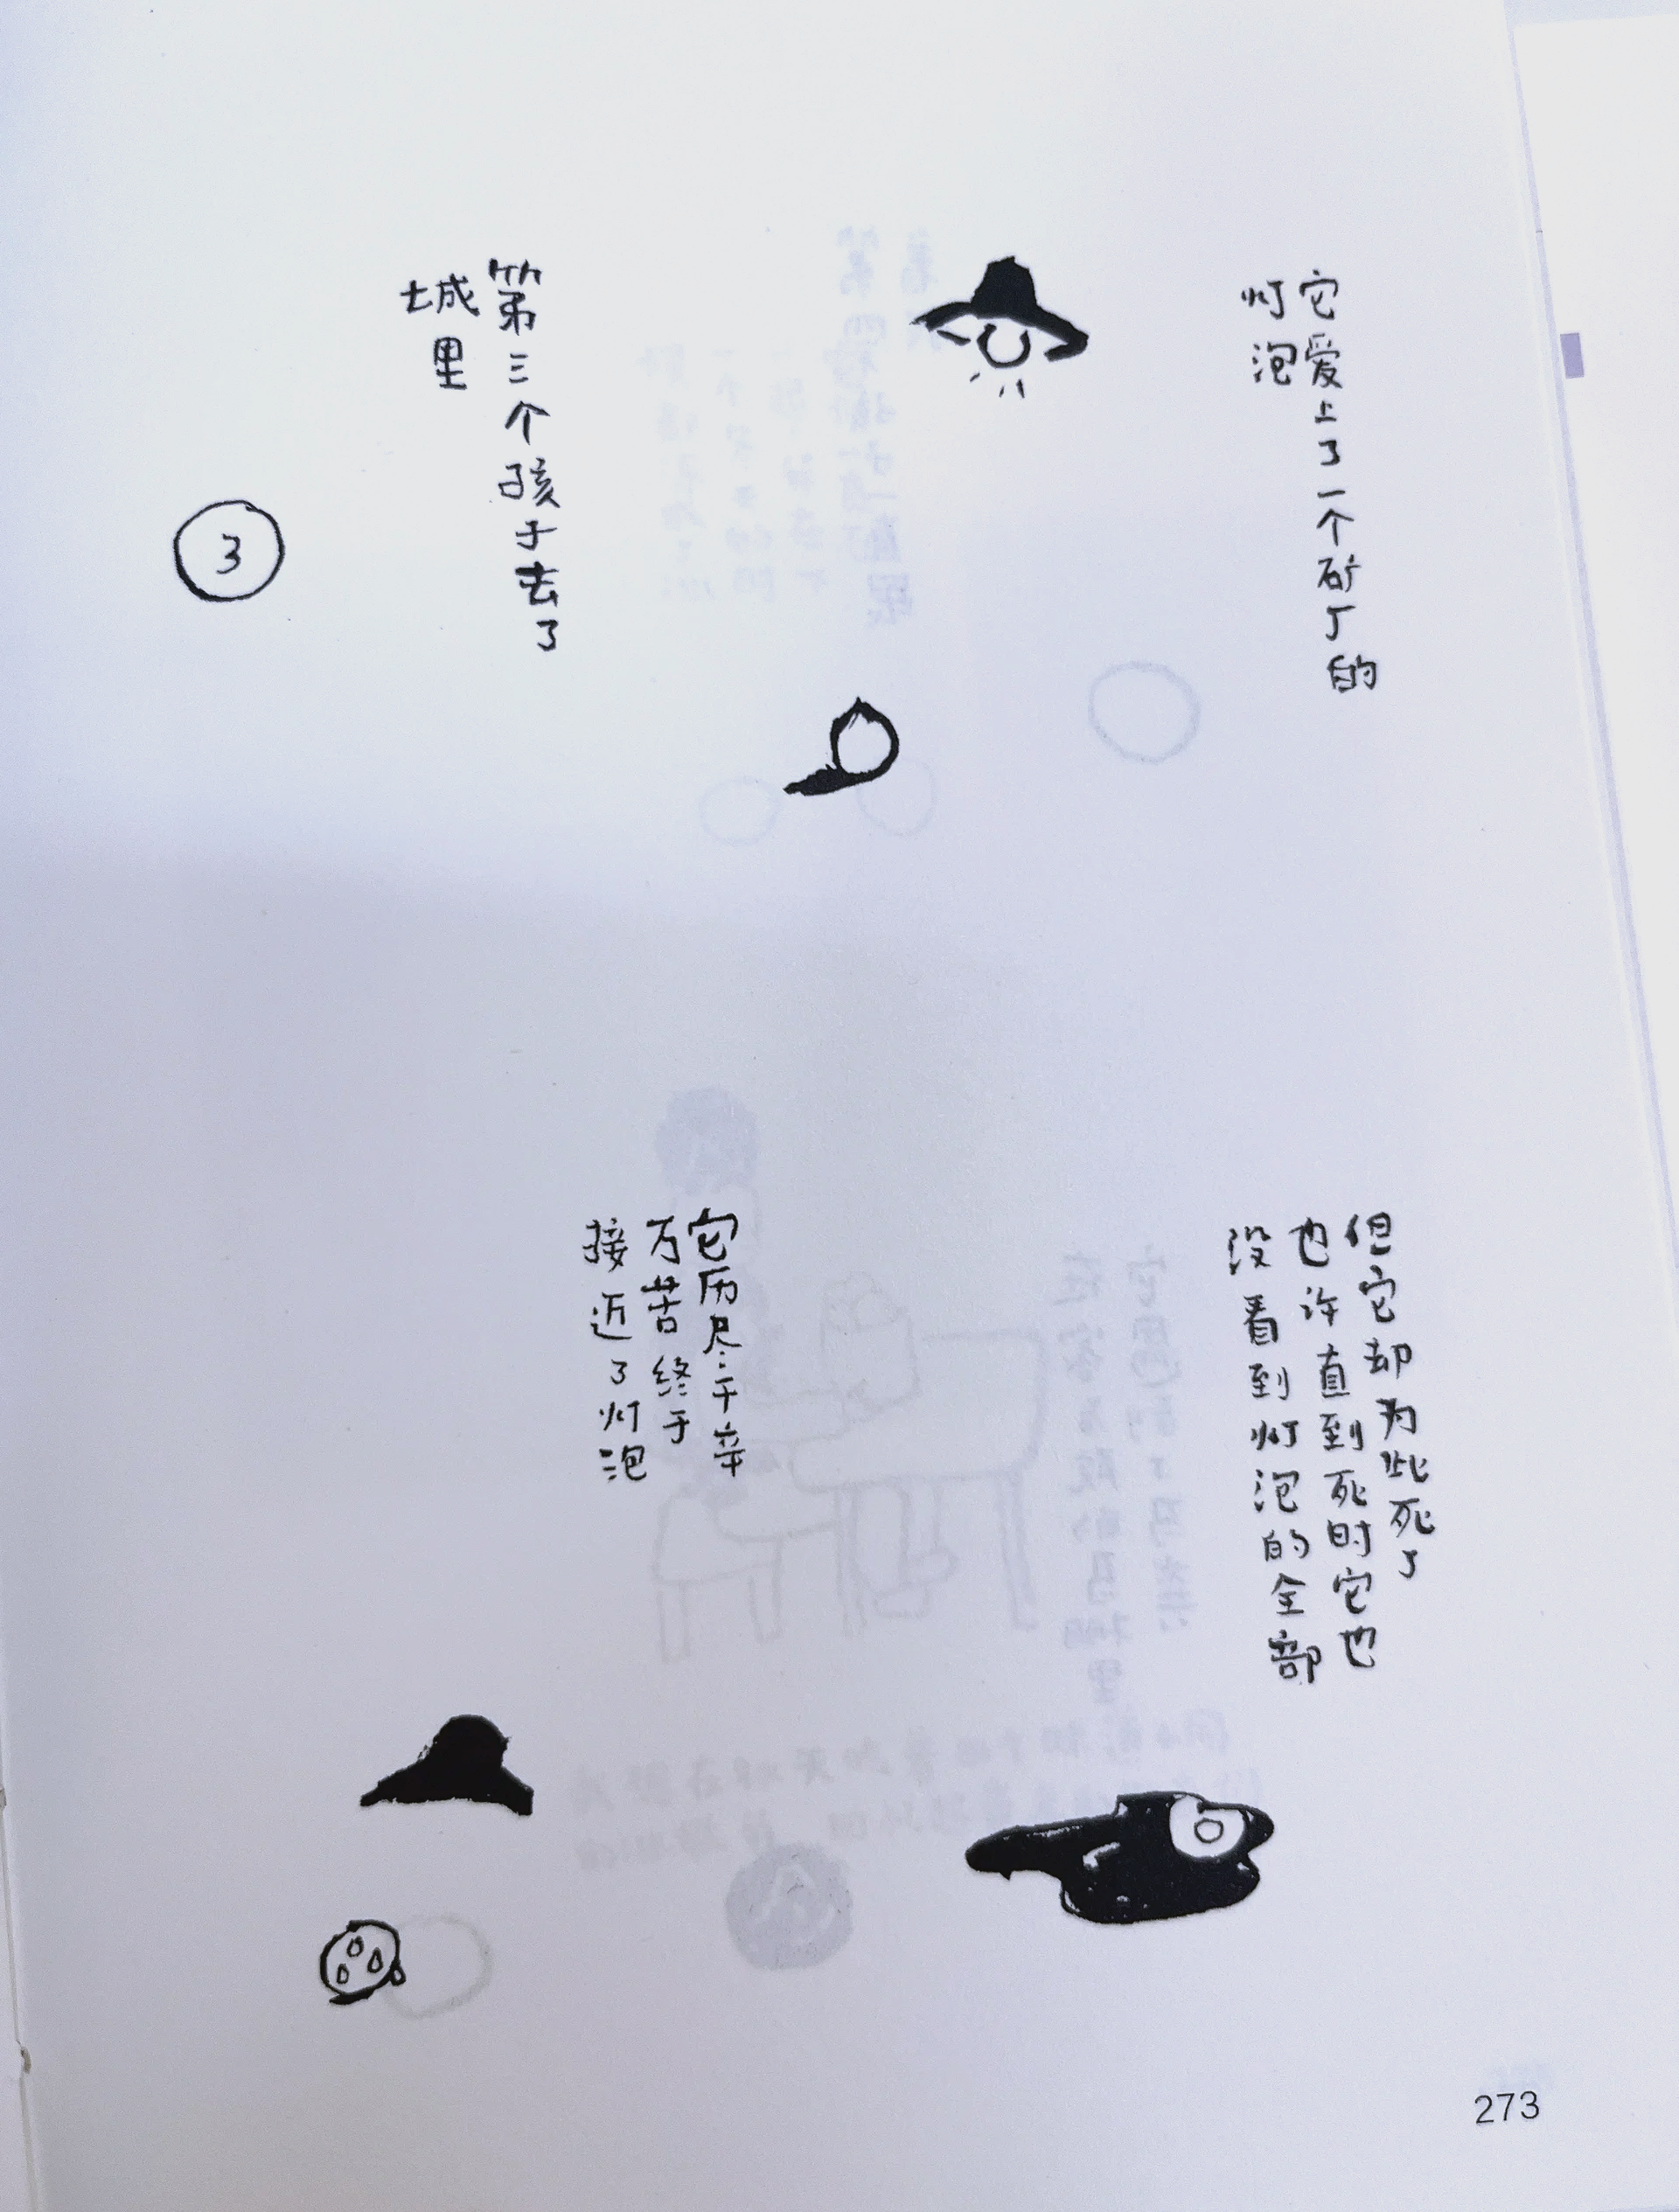 第三个孩子去了
城里
3
它爱上了一个矿丁的
灯泡
它历尽千辛
万苦终于
接近了灯泡
但它却为此死了
也许直到死时它也
没看到灯泡的全部
273